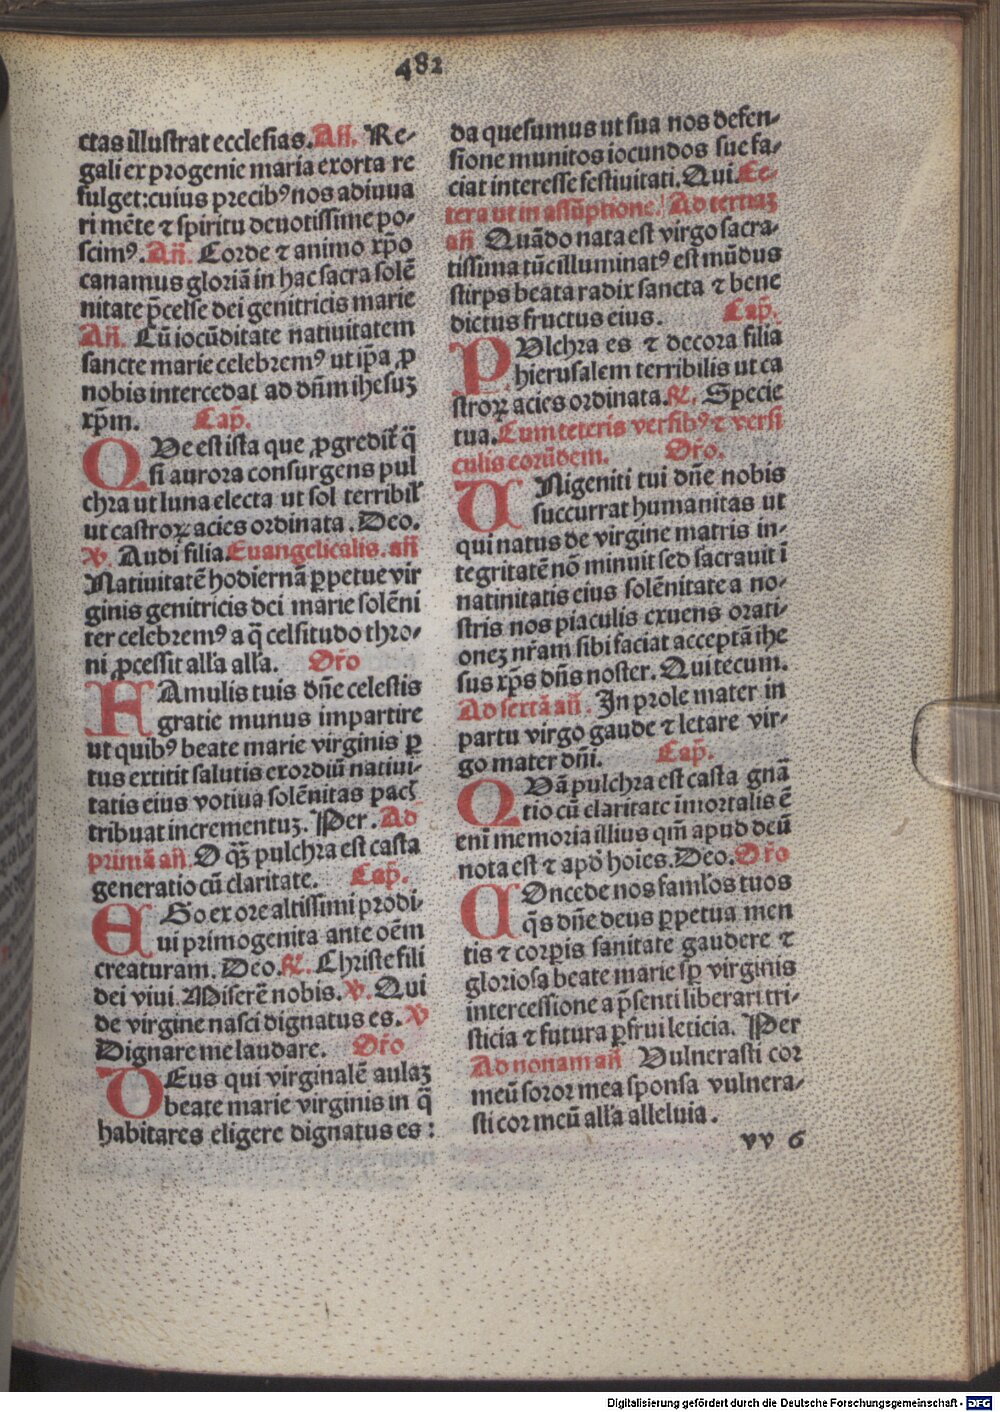 482
ctas illustrat ecclesias. Añ. Re-
gali ex progenie maria exorta re
fulget: cuius precibꝰ nos adiuua
ri mēte ⁊ spiritu deuotissime po-
scimꝰ. Añ. Corde ⁊ animo xp̄o
canamus gloriā in hac sacra solē
nitate p̄celse dei genitricis marie
Añ. Cū iocūditate natiuitatem
sancte marie celebremꝰ ut ip̄a ꝓ
nobis intercedat ad dñm ihesuꝫ
xp̄m. Cap̄.
QVe est ista que ꝓgredit̄ q̄
si aurora consurgens pul
chra ut luna electa ut sol terribil̄
ut castroꝝ acies ordinata. Deo.
℣. Audi filia. Euangelicalis. añ
Natiuitatē hodiernā ꝑpetue vir
ginis genitricis dei marie solēni
ter celebremꝰ a q̄ celsitudo thro-
ni ꝓcessit all'a all'a. Or̄o
FAmulis tuis dñe celestis
gratie munus impartire
ut quibꝰ beate marie virginis ꝑ
tus extitit salutis exordiū natiui-
tatis eius votiua solēnitas pacꝭ
tribuat incrementuꝫ. Per. Ad
primā añ. O q̄ꝫ pulchra est casta
generatio cū claritate. Cap̄.
EGo ex ore altissimi prodi-
ui primogenita ante oēm
creaturam. Deo. ℟. Christe fili
dei viui Miserē nobis. ℣. Qui
de virgine nasci dignatus es. ℣
Dignare me laudare. Or̄o
DEus qui virginalē aulaꝫ
beate marie virginis in q̄
habitares eligere dignatus es:
da quesumus ut sua nos defen-
sione munitos iocundos sue fa-
ciat interesse festiuitati. Qui. Ce-
tera ut in assūptione. Ad tertiaꝫ
añ Quādo nata est virgo sacra-
tissima tūc illuminatꝰ est mūdus
stirps beata radix sancta ⁊ bene
dictus fructus eius. Cap̄.
PVlchra es ⁊ decora filia
hierusalem terribilis ut ca
stroꝝ acies ordinata. ℟. Specie
tua. Cum ceteris versibꝰ ⁊ versi
culis eorūdem. Or̄o.
VNigeniti tui dñe nobis
succurrat humanitas ut
qui natus de virgine matris in-
tegritatē nō minuit sed sacrauit ī
natiuitatis eius solēnitate a no-
stris nos piaculis exuens orati-
oneꝫ nr̄am sibi faciat acceptā ihe
sus xp̄s dñs noster. Qui tecum.
Ad sextā añ. In prole mater in
partu virgo gaude ⁊ letare vir-
go mater dñi. Cap̄.
QVā pulchra est casta gnā
tio cū claritate īmortalis ē
eni memoria illius qm̄ apud deū
nota est ⁊ apd̄ hoies. Deo. Or̄o
COncede nos faml'os tuos
q̄s dñe deus ꝑpetua men
tis ⁊ corꝑis sanitate gaudere ⁊
gloriosa beate marie sꝑ virginis
intercessione a p̄senti liberari tri-
sticia ⁊ futura ꝑfrui leticia. Per
Ad nonam añ Vulnerasti cor
meū soror mea sponsa vulnera-
sti cor meū all'a alleluia.
vv 6
Digitalisierung gefördert durch die Deutsche Forschungsgemeinschaft - DFG